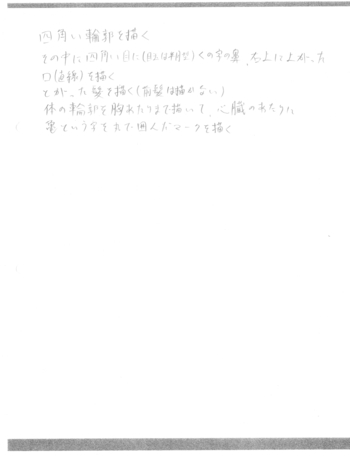 四角い輪郭を描く
その中に四角い目に(目玉は半月型)くの字の鼻、右上に上がった
口(直線)を描く
とがった髪を描く(前髪は描かない)
体の輪郭を胸あたりまで描いて、心臓のあたりに
という字を丸で囲んだマークを描く